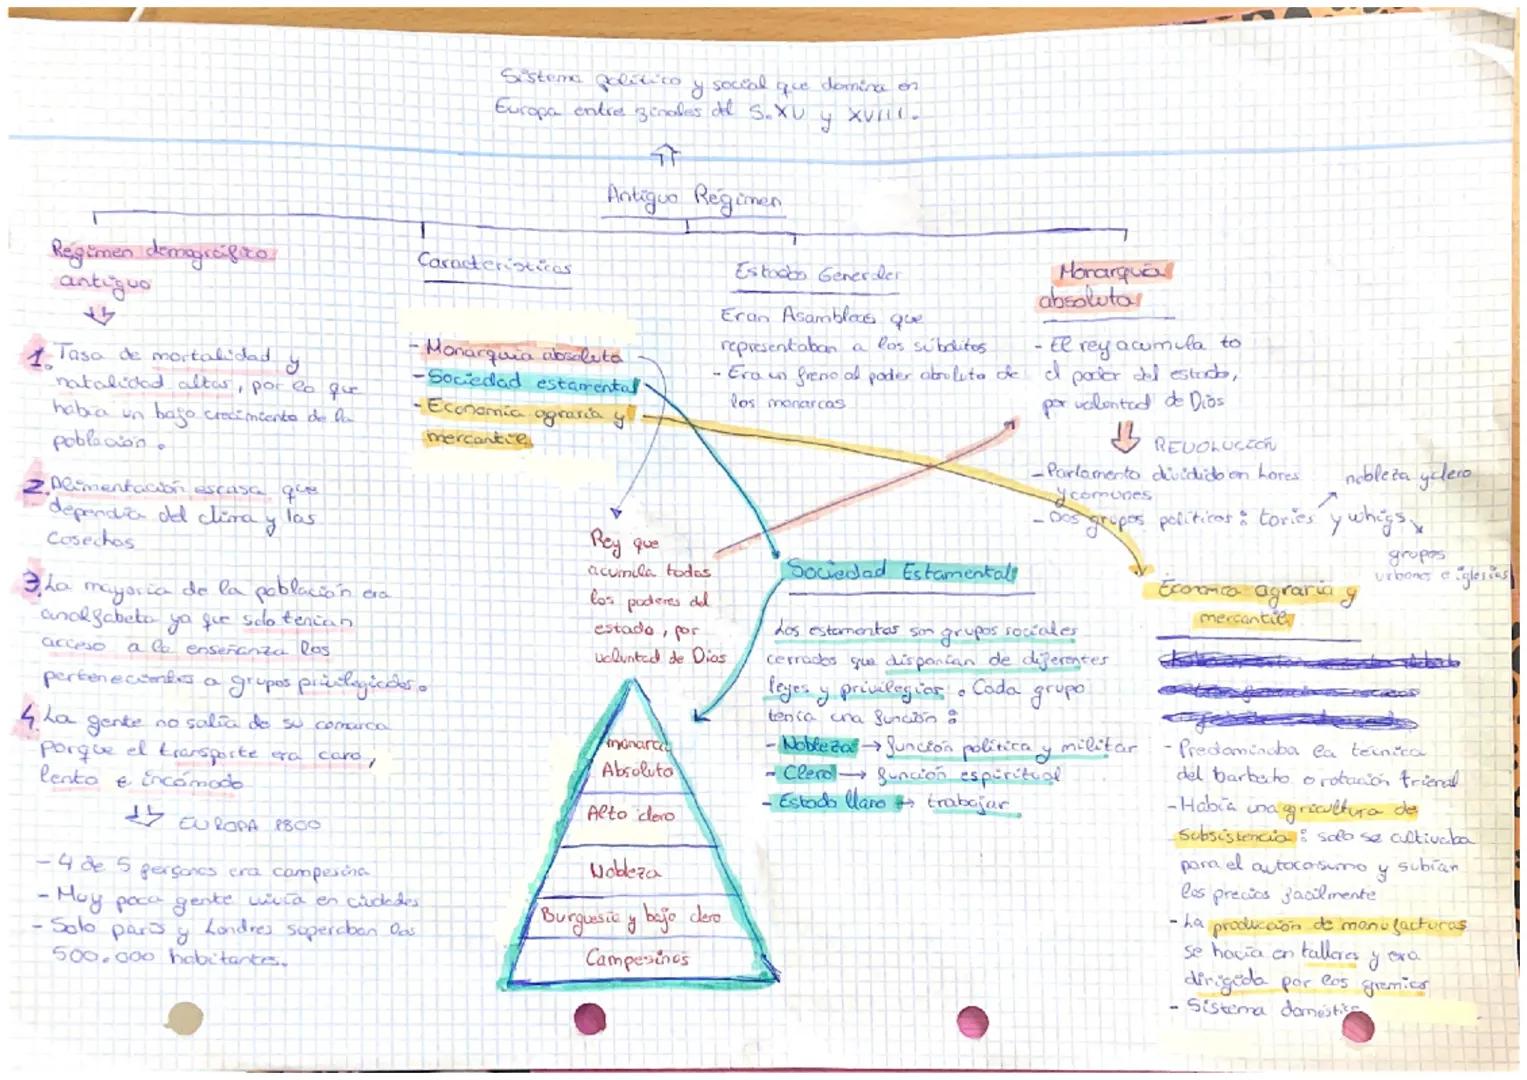 Sistema político y social que domina en
Europa entre finales del S.XV y XVIII.
Antiguo Régimen
Régimen demográfico
antiguo
1. Tasa de mortalidad y
natalidad altas, por lo que
había un bajo crecimiento de la
población.
2. Alimentación escasa que
dependía del clima y las
cosechas
3. La mayoría de la población era
analfabeta ya que solo tenían
acceso a la enseñanza los
pertenecientes a grupos privilegiados.
4. La gente no salía de su comarca
porque el transporte era caro,
lento e incómodo
EUROPA 1800
- 4 de 5 personas era campesina
- Muy poca gente vivía en ciudades
- Solo parís y Londres superaban los
500.000 habitantes.
Características
- Monarquía absoluta
- Sociedad estamental
- Economía agraria y
mercantil
Rey que
acumula todos
los poderes del
estado, por
voluntad de Dios
monarca
Absoluto
Alto clero
Nobleza
Burguesía y bajo clero
Campesinos
Estados Generales
Eran Asambleas que
representaban a los súbditos
- Era un freno al poder absoluto de
los monarcas
Sociedad Estamental
Los estamentos son grupos sociales
cerrados que disponían de diferentes
leyes y privilegios. Cada grupo
tenía una función:
- Nobleza → función política y militar
- Clero → función espiritual
- Estado llano → trabajar
Monarquía
absoluta
- El rey acumula to
el poder del estado,
por voluntad de Dios
REVOLUCIÓN
- Parlamento dividido en lores
y comunes
- Dos grupos políticos: tories y whigs
nobleza y clero
grupos
urbanos e iglesias
Economía agraria y
mercantil
- Predominaba la técnica
del barbecho o rotación trienal
- Había una agricultura de
subsistencia: solo se cultivaba
para el autoconsumo y subían
los precios fácilmente
- La producción de manufacturas
se hacía en talleres y era
dirigida por los gremios
- Sistema doméstico